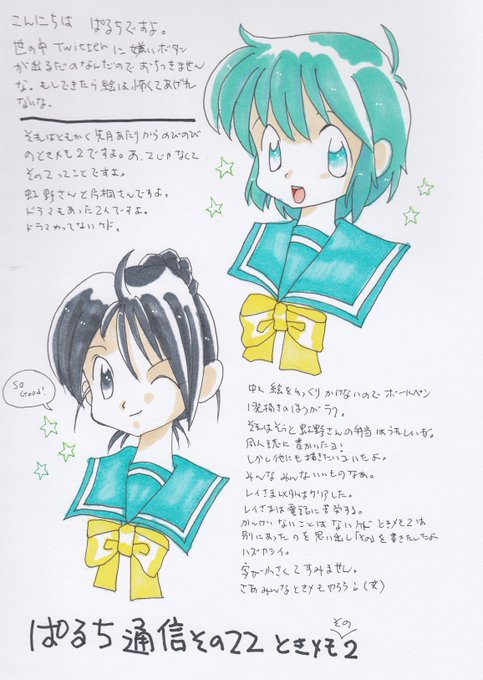 こんにちは ぱるちですよ。
世の中Twitterに嫌いボタン
が出るだのなんだのでおちつきません
な。もしできたら絵は怖くてあげれ
ないな。
それはともかく先月あたりからのびのび
のときメモ2ですよ。あ、2じゃなくて
その2ってことですよ。
虹野さんと片桐さんですよ。
ドラマもあった2人ですよ。
ドラマやってないケド。
So
Good!
中々絵をゆっくりかけないのでボールペン
1発描きのほうがラク。
それはそうと虹野さんの弁当はうらしいぞ。
同人誌に書かいたヨ!
しかし他にも描きたいコいたよ。
みんなみんないいものなあ。
レイさま以外はクリアした。
レイさまは電話に苦労する。
かんけいないことはないケドときメモ2は
別にあったのを思い出し「その」を書きたしたよ
ハズカシイ。
字が小さくてすみません。
さあみんなときメモやろう!(笑)
ぱるち通信その22 ときメモその2